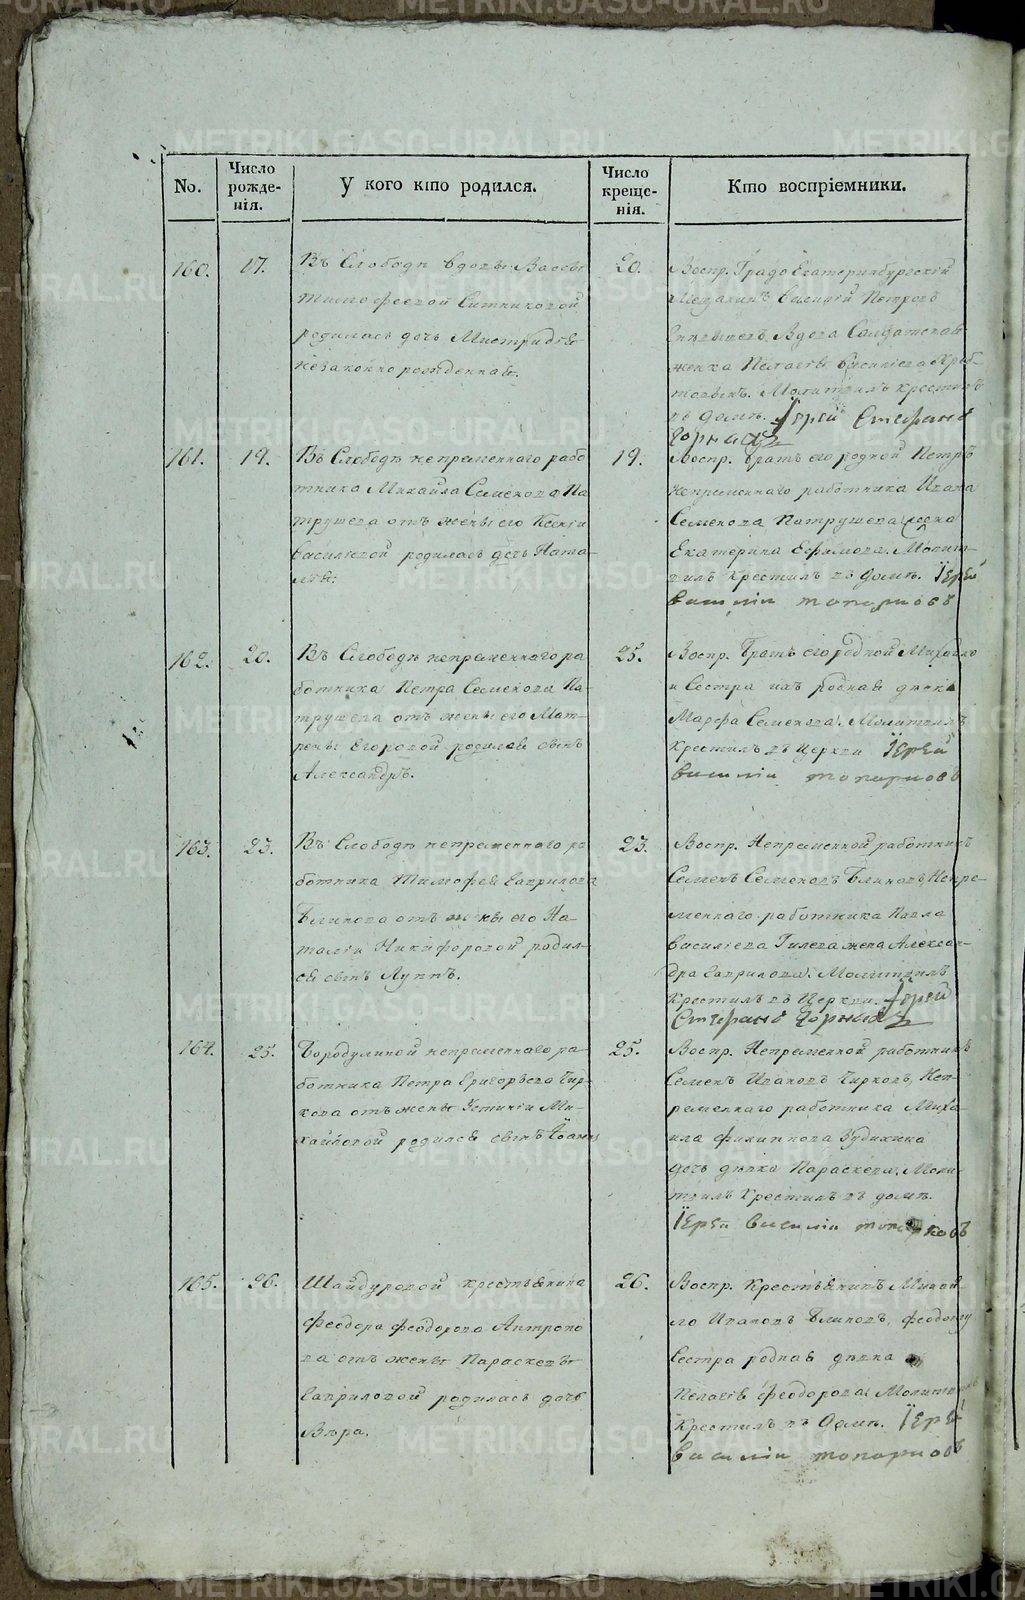 No.
Число рожденія.
У кого кто родился.
Число крещенія.
Кто воспріемники.
160.
17.
Въ Слободѣ вдовы Вассы
Тимофеевой Ситниковой
родилась дочь Митродія
незаконнорожденная.
20.
Воспр. Градо Екатеринбургскій
Мещанинъ Василий Петровъ
Вдова Солдатская
женка Пелагія Василиева
Молитвилъ крестилъ
въ домѣ. Іерей Стефанъ
Горныхъ
161.
19.
Въ Слободѣ непременнаго рабо
тника Михайла Семенова Па
трушева отъ жены его Ксении
Васильевой родилась дочь Ната-
лія.
19.
Воспр. братъ его родной Петръ
непременнаго работника Ивана
Семенова Патрушева жена
Екатерина Ефимова. Молит-
вилъ крестилъ въ домѣ. Іерей
Василій Топорковъ
162.
20.
Въ Слободѣ непременнаго ра
ботника Петра Семенова Па-
трушева отъ жены его Мат-
рены Егоровой родился сынъ
Александръ.
25.
Воспр. братъ его родной Михайло
и Сестра ихъ родная дѣвка
Марфа Семенова. Молитвилъ
Крестилъ въ Церкви Іерей
Василій Топорковъ
163.
23.
Въ Слободѣ непременнаго ра
ботника Тимофея Гаврилова
Блинова отъ жены его На-
талии Никифоровой родил-
ся сынъ Луппъ.
23.
Воспр. Непременной работникъ
Семенъ Семеновъ Блиновъ, Непре-
меннаго работника Павла
Василіева Гилева жена Алексан-
дра Гаврилова. Молитвилъ
Крестилъ въ Церкви. Іерей
Стефанъ Горныхъ
164.
25.
Бородулиной непременнаго ра-
ботника Петра Григорьева Чир-
кова отъ жены Устинии Ми-
хайловой родился сынъ Іоаннъ
25.
Воспр. Непременной работникъ
Семенъ Ивановъ Чирковъ, Неп-
ременнаго работника Миха-
ила Филиппова Зудихина
дочь дѣвка Параскева. Моли-
твилъ Крестилъ въ домѣ.
Іерей Василій Топорковъ
165.
26.
Шайдуровой крестьянина
Феодора Феодорова Антропо
ва отъ жены Параскевы
Гавриловой родилась дочь
Вѣра.
26.
Воспр. Крестьянинъ Михай-
ло Ивановъ Блиновъ, Феодору
Сестра родная дѣвка
Пелагія Феодорова. Молитвилъ
Крестилъ въ домѣ. Іерей
Василій Топорковъ
METRIKI.GASO-URAL.RU